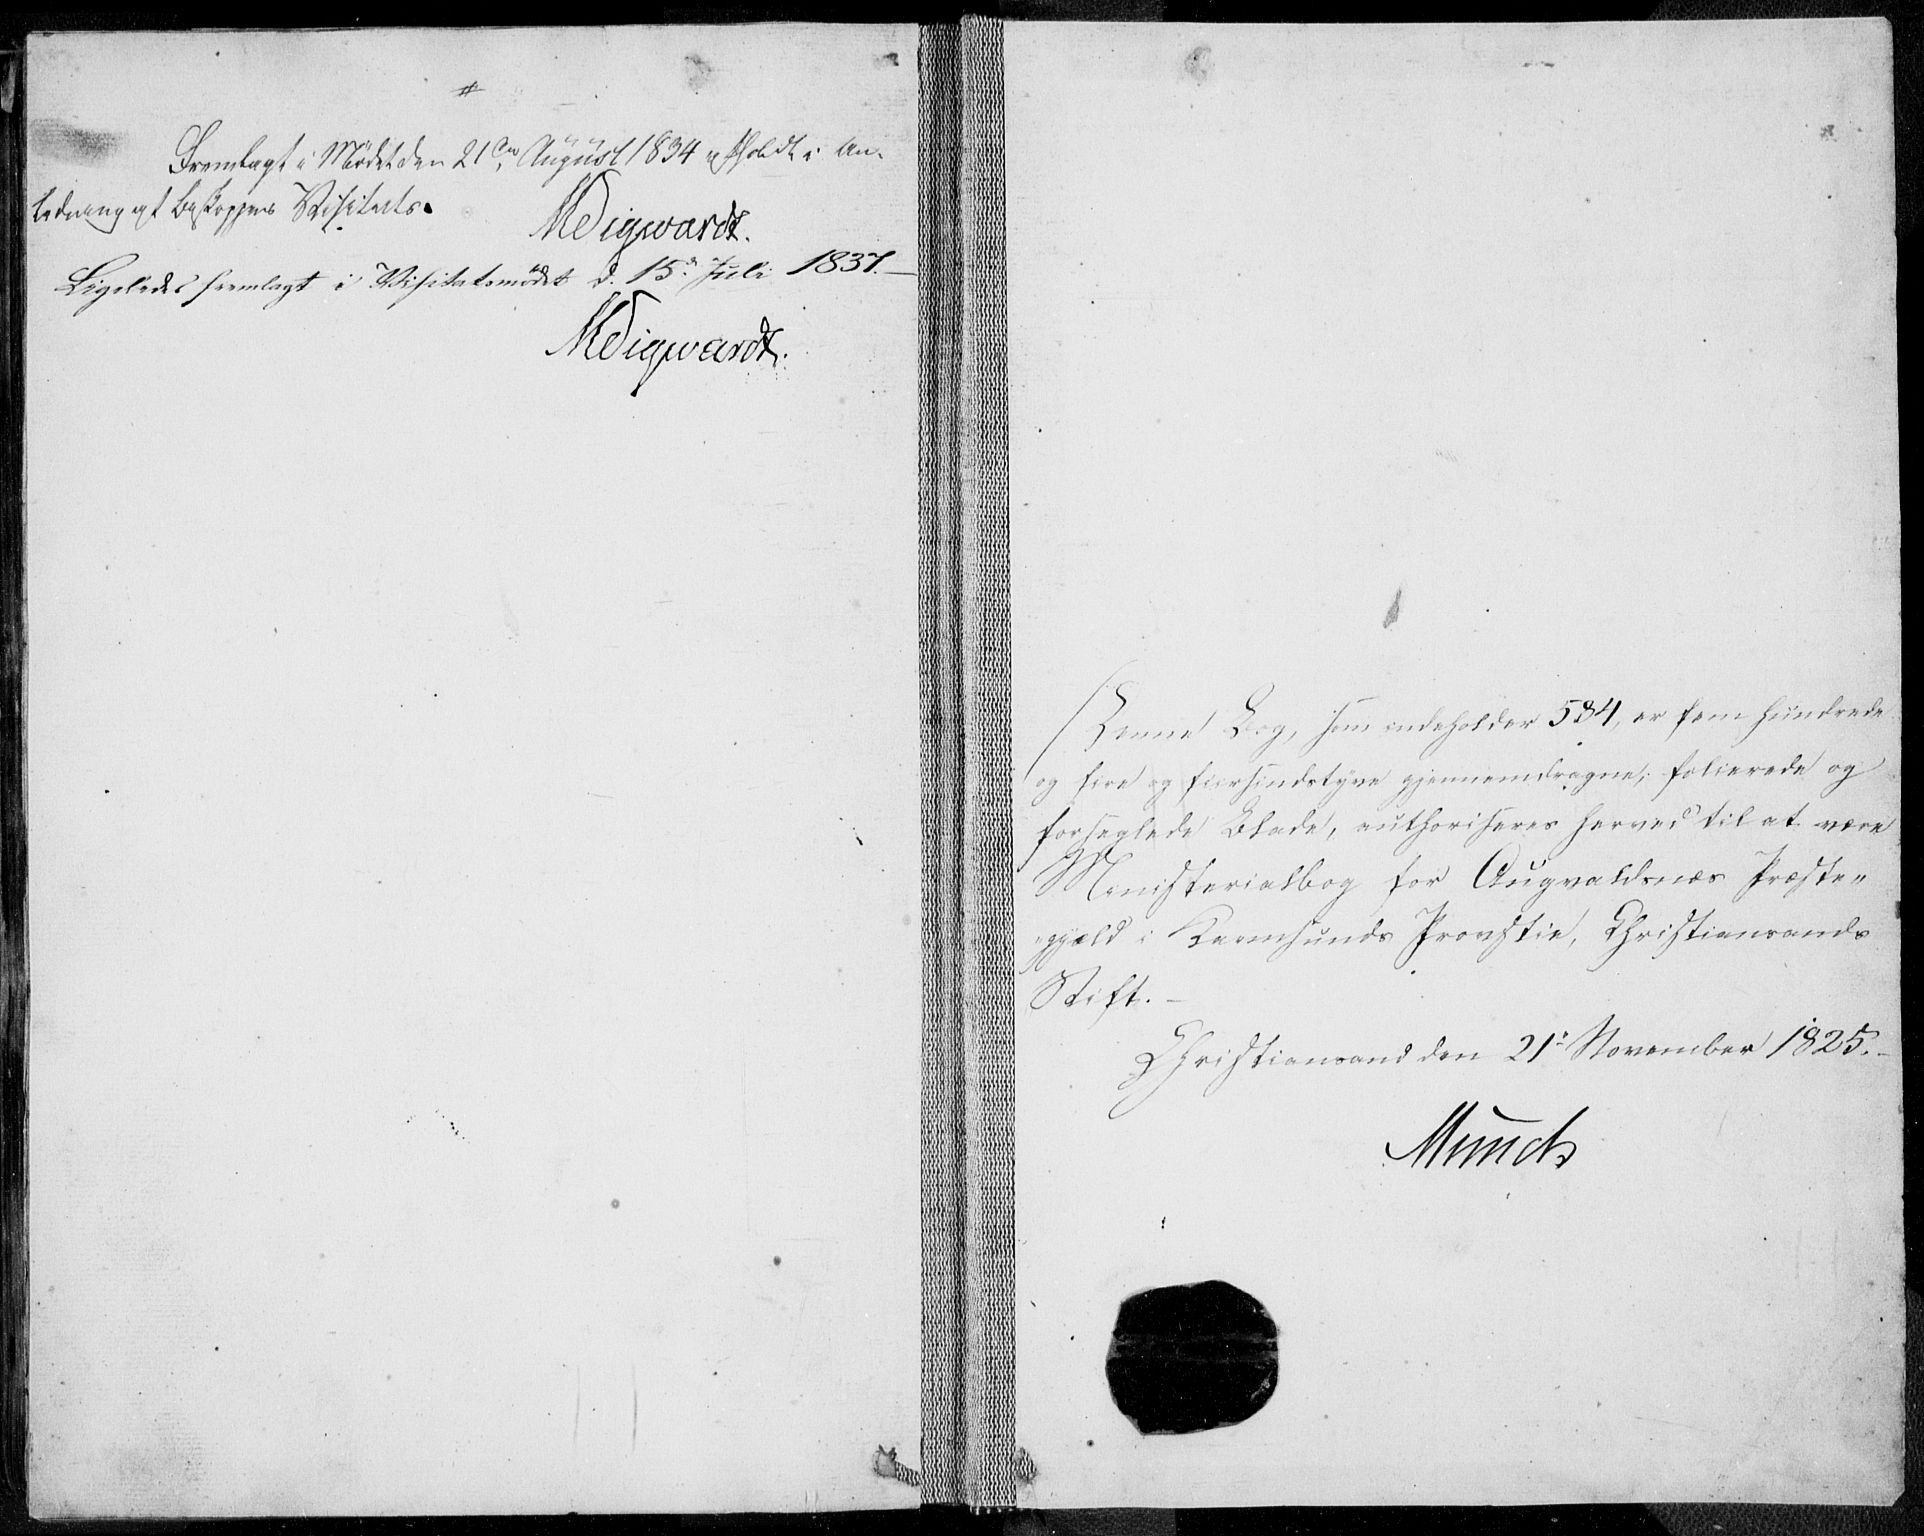 Fremlagt i Mödet den 21de August 1834 afholdt i An-
ledning af Biskoppens Visitats.
MSigwardt.
Ligeledes fremlagt i Visitatsmödet d. 15de Juli 1837.
MSigwardt.
Denne Bog, som indeholder 584, er fem hundrede
og fire og fiirsindstyve gjennemdragne, folierede og
forseglede Blade, authoriseres herved til at være
Ministerialbog for Augvaldsnæs Præste-
gjæld i Karmsunds Provstie, Christiansands
Stift. –
Christiansand den 21de November 1825. –
Munch